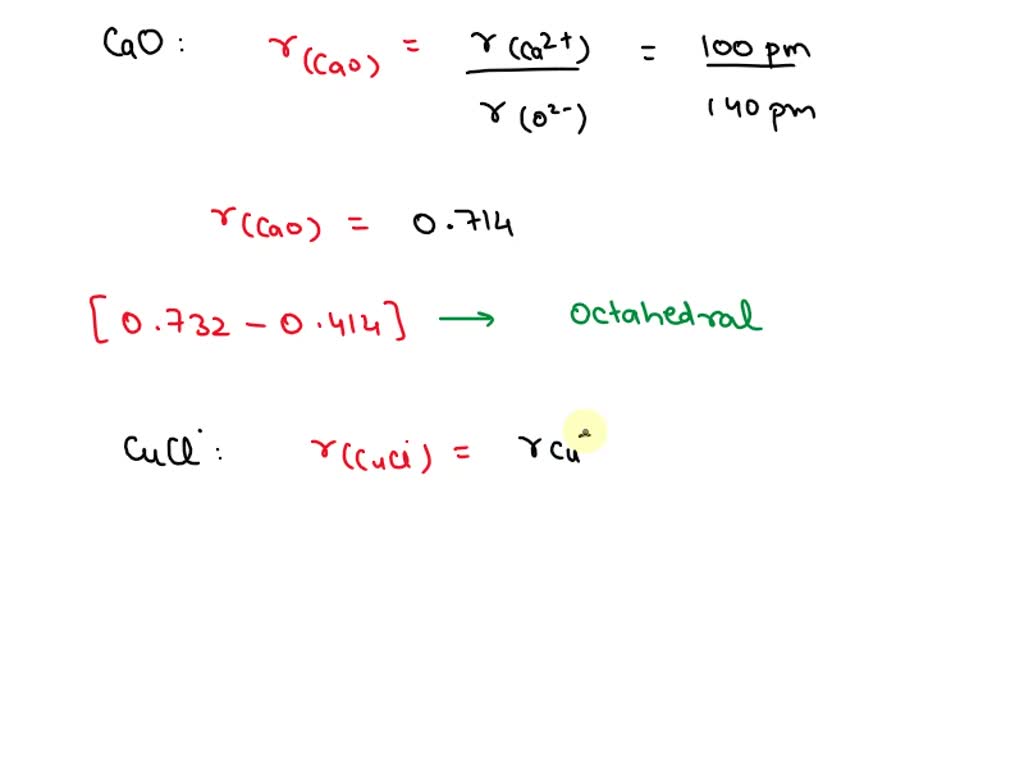 CaO : r(CaO) = r(Ca2+) / r(O2-) = 100 pm / 140 pm
r(CaO) = 0.714
[0.732 - 0.414] → Octahedral
CuCl : r(CuCl) = rCu